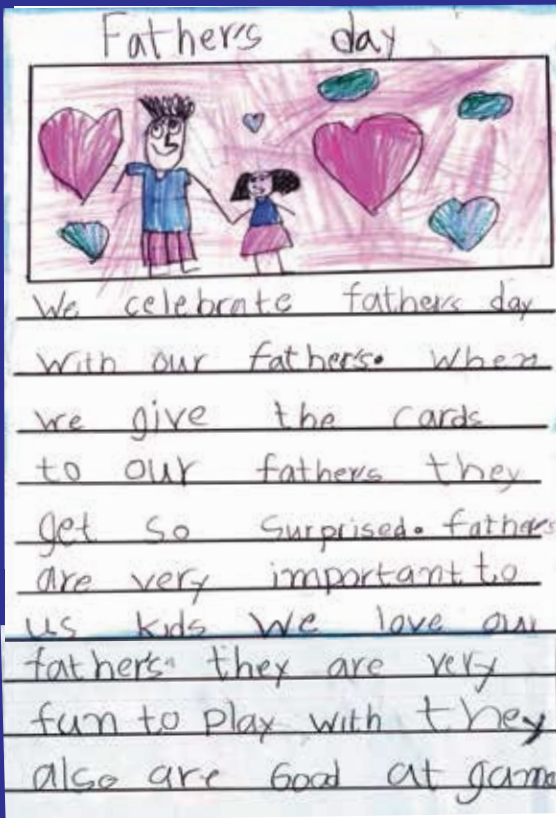 Father's day
We celebrate father's day
with our father's. When
we give the cards
to our fathers they
get so surprised. fathers
are very important to
us kids we love our
father's. they are very
fun to play with they
also are Good at game